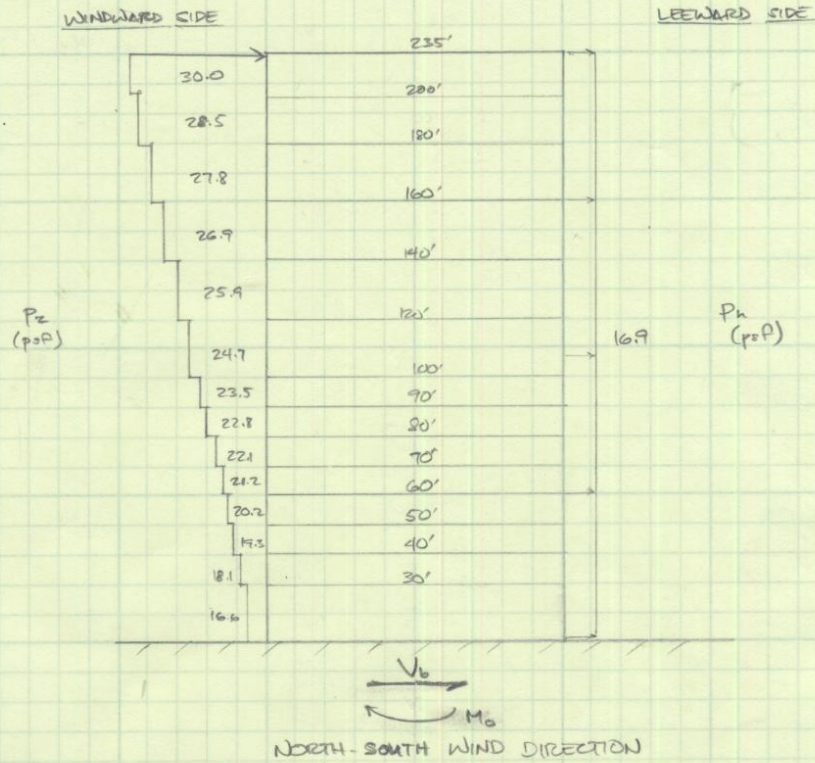 WINDWARD SIDE
LEEWARD SIDE
235'
30.0
200'
28.5
180'
27.8
160'
26.9
140'
25.9
120'
Pz
(psf)
16.9
Ph
(psf)
24.7
100'
23.5
90'
22.8
80'
22.1
70'
21.2
60'
20.2
50'
19.3
40'
18.1
30'
16.6
Vb
Mo
NORTH-SOUTH WIND DIRECTION